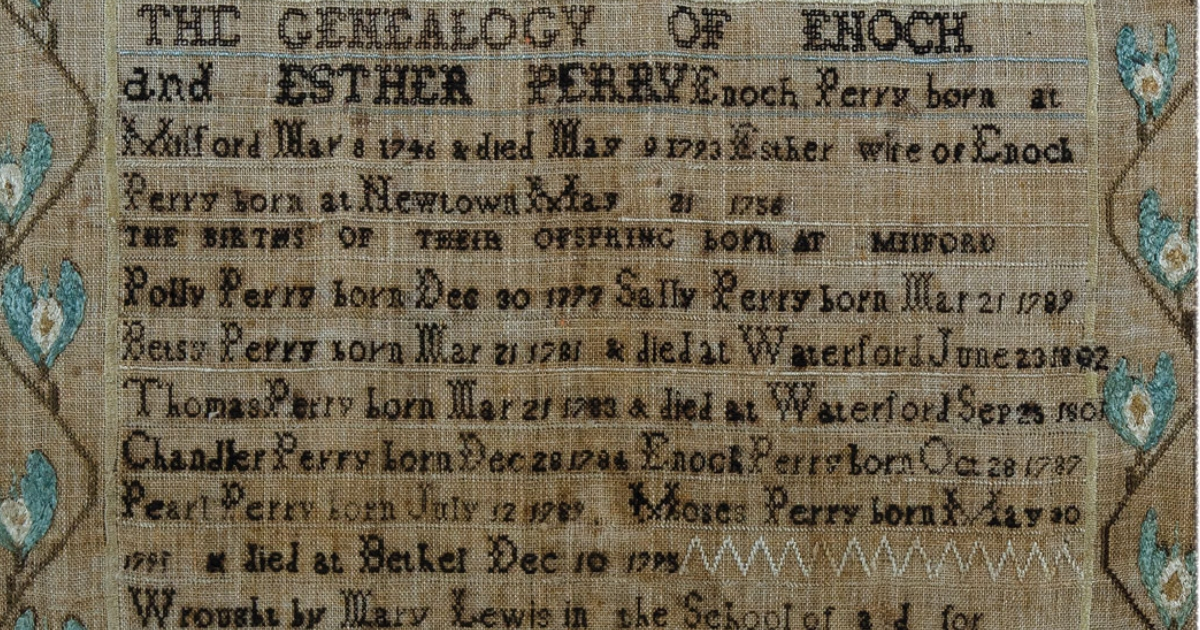 THE GENEALOGY OF ENOCH
and ESTHER PERRY Enoch Perry born at
Milford Mar 8 1746 & died May 9 1793 Esther wife of Enoch
Perry born at Newtown May 21 1756
THE BIRTHS OF THEIR OFSPRING BORN AT MILFORD
Polly Perry born Dec 30 1777 Sally Perry born Mar 21
Betsy Perry born Mar 21 1781 & died at Waterford June 23 1802
Thomas Perry born Mar 21 1783 & died at Waterford Sep 23 1801
Chandler Perry born Dec 28 Enoch Perry born Oct 28 1787
Pearl Perry born July 12 1789 Moses Perry born May 30
& died at Bethel Dec 10 1795
Wrought by Mary Lewis in the School of for